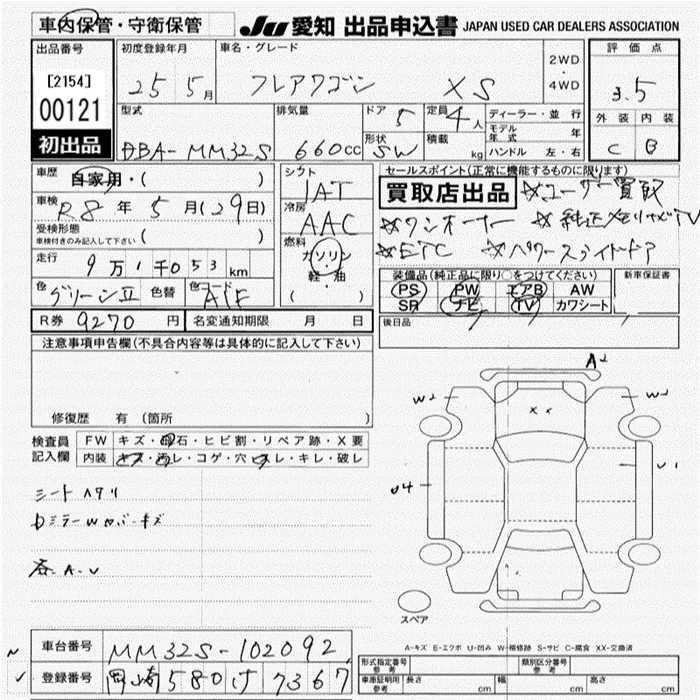 車内保管・守衛保管 JU 愛知 出品申込書 JAPAN USED CAR DEALERS ASSOCIATION
出品番号 初度登録年月 車名・グレード 2WD ・ 4WD 評価点
[2154] 25 5月 フレアワゴン XS 3.5
00121 型式 排気量 ドア 5 定員 4人 ディーラー・並行 外装 内装
初出品 DBA-MM32S 660cc 形状 SW 積載 kg モデル年式 年 C B
ハンドル 左・右
車歴 自家用・( ) シフト IAT セールスポイント(正常に機能するものに限ります)
車検 R8年 5月(29日) 冷房 AAC 買取店出品 ☆ユーザー買取
受検形態 車検付きのみ記入して下さい ( ) 燃料 ガソリン・軽・油 ( ) ☆ワンオーナー ☆純正メモリナビTV
走行 9万1千053km ☆ETC ☆パワースライドドア
色 グリーンII 色替 色コード 装備品(純正品に限り○をつけてください) 新車保証書
PS PW エアB AW
SR ナビ TV カワシート
R券 9270円 名変通知期限 月 日 後日品
注意事項申告欄(不具合内容等は具体的に記入して下さい)
修復歴 有(箇所 )
A2
W2 W2
U4 U1
検査員記入欄 FW キズ・飛石・ヒビ割・リペア跡・X要
内装 キズ・汚レ・コゲ・穴・スレ・キレ・破レ
シートヘタリ
Dミラーwカバーキズ
各A.U
スペア
A-キズ E-エクボ U-凹み W-補修跡 S-サビ C-腐食 XX-交換済
車台番号 MM32S-102092
登録番号 岡崎580け7367
形式指定番号 参考 類別区分番号 参考
車庫証明用 参考 長さ cm 幅 cm 高さ cm